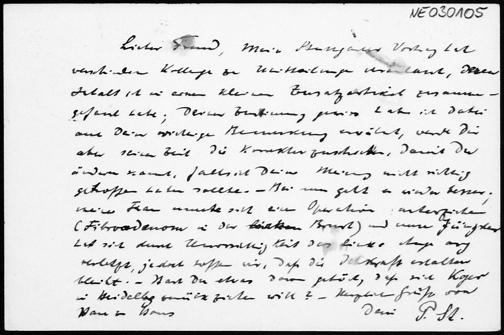 NE030105
Lieber Freund, Mein Stuttgarter Vortrag hat
verschiedene Kollegen zu Mitteilungen veranlasst, deren
Inhalt ich in einem kleinen Zusatzartikel zusammen-
gefasst habe; Deiner Zustimmung gewiss habe ich dabei
auch Deine wichtige Bemerkung erwähnt, werde Dir
aber seiner Zeit die Korrektur zuschicken, damit Du
ändern kannst, falls ich Deine Meinung nicht richtig
getroffen haben sollte. – Bei uns geht es wieder besser,
meine Frau musste sich einer Operation unterziehen
(Fibroadenom in der Brust) und unser Jüngster
hat sich durch Unvorsichtigkeit das linke Auge arg
verletzt, jedoch hoffen wir, dass die Sehkraft erhalten
bleibt. – Hast Du etwas davon gehört, dass sich
in Heidelberg zurückziehen will? – Herzliche Grüsse von
Haus zu Haus Dein P. St.